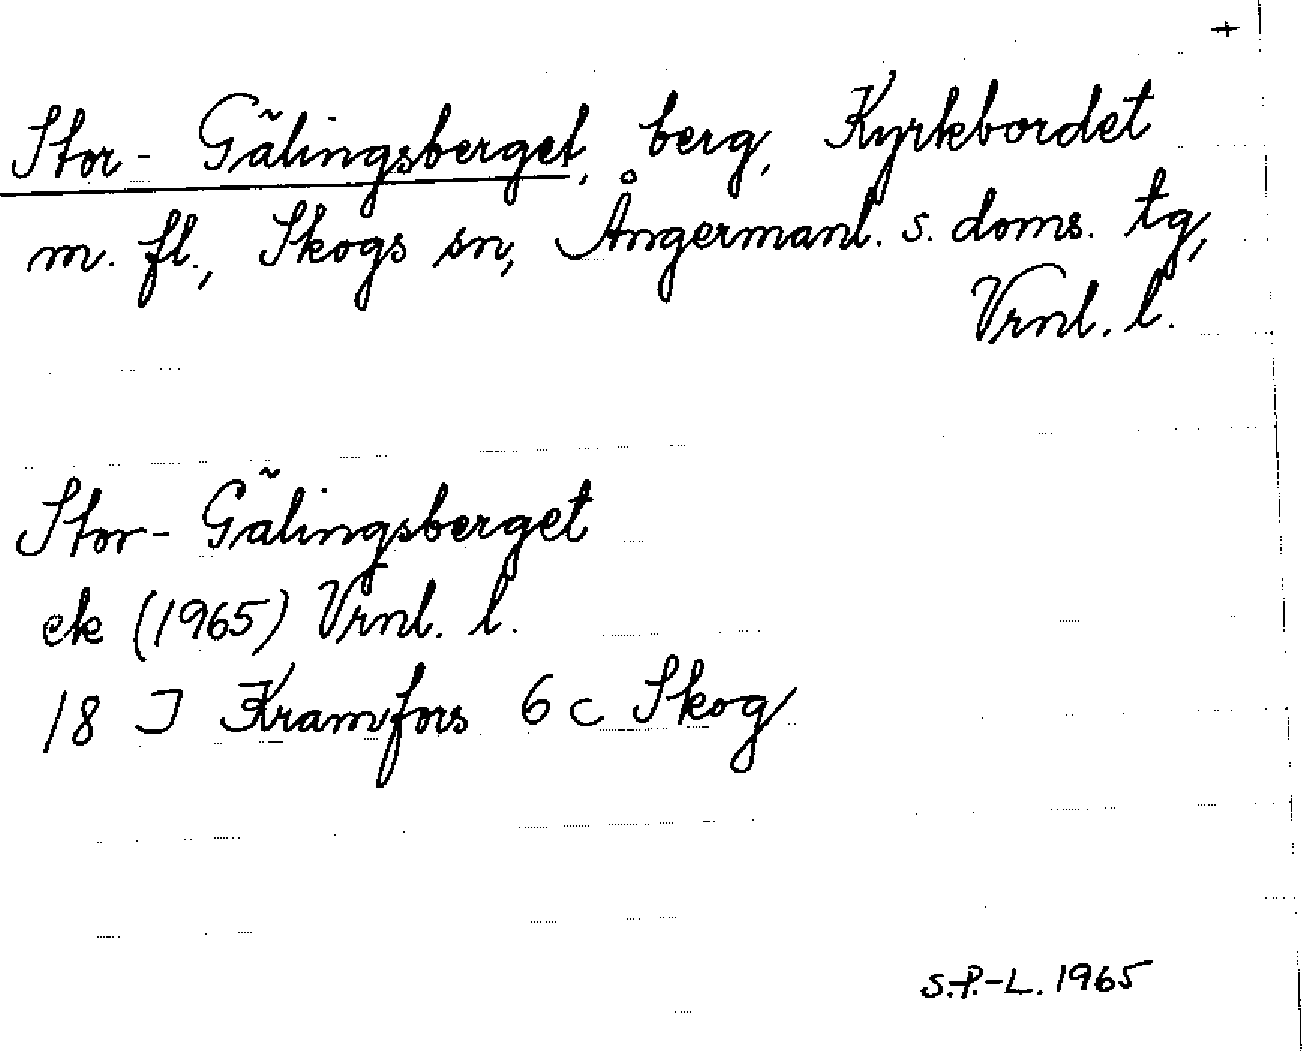 +
Stor-Gälingsberget, berg, Kyrkbordet
m. fl., Skogs sn, Ångermanl. s. doms. tg,
Vrnl. l.
Stor-Gälingsberget
ek (1965) Vrnl. l.
18 J Kramfors 6 c Skog
S.P.-L. 1965